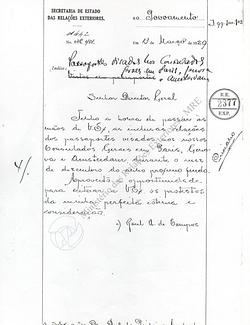 SECRETARIA DE ESTADO
DAS RELAÇÕES EXTERIORES.
Em 13 de Março de 1929
Passaportes visados nos Consulados
Geraes em Paris, Genova
e Amsterdam
Senhor Director Geral
Tenho a honra de passar ás
mãos de V. Ex. as inclusas relações
dos passaportes visados nos nossos
Consulados Geraes em Paris, Geno-
va e Amsterdam, durante o mez
de dezembro do anno proximo findo.
Aproveito a opportunidade
para reiterar a V. Ex. os protestos
da minha perfeita estima e
consideração.
a) Paul R. de Campos
R. E.
2377
EXP.